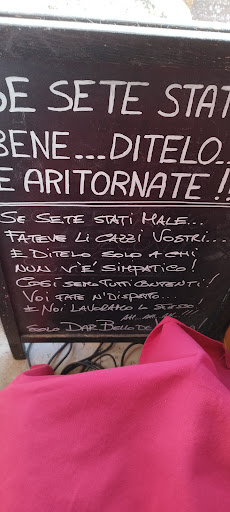 SE SETE STATI
BENE...DITELO...
E ARITORNATE!!
SE SETE STATI MALE...
FATEVE LI CAZZI VOSTRI...
E DITELO SOLO A CHI
NUN V'È SIMPATICO!
COSÌ SEMO TUTTI CONTENTI!
VOI FATE N'DISPETTO...
E NOI LAVORAMO LO STESSO!
AH..AH..!!!
SOLO DAR BELLO DE